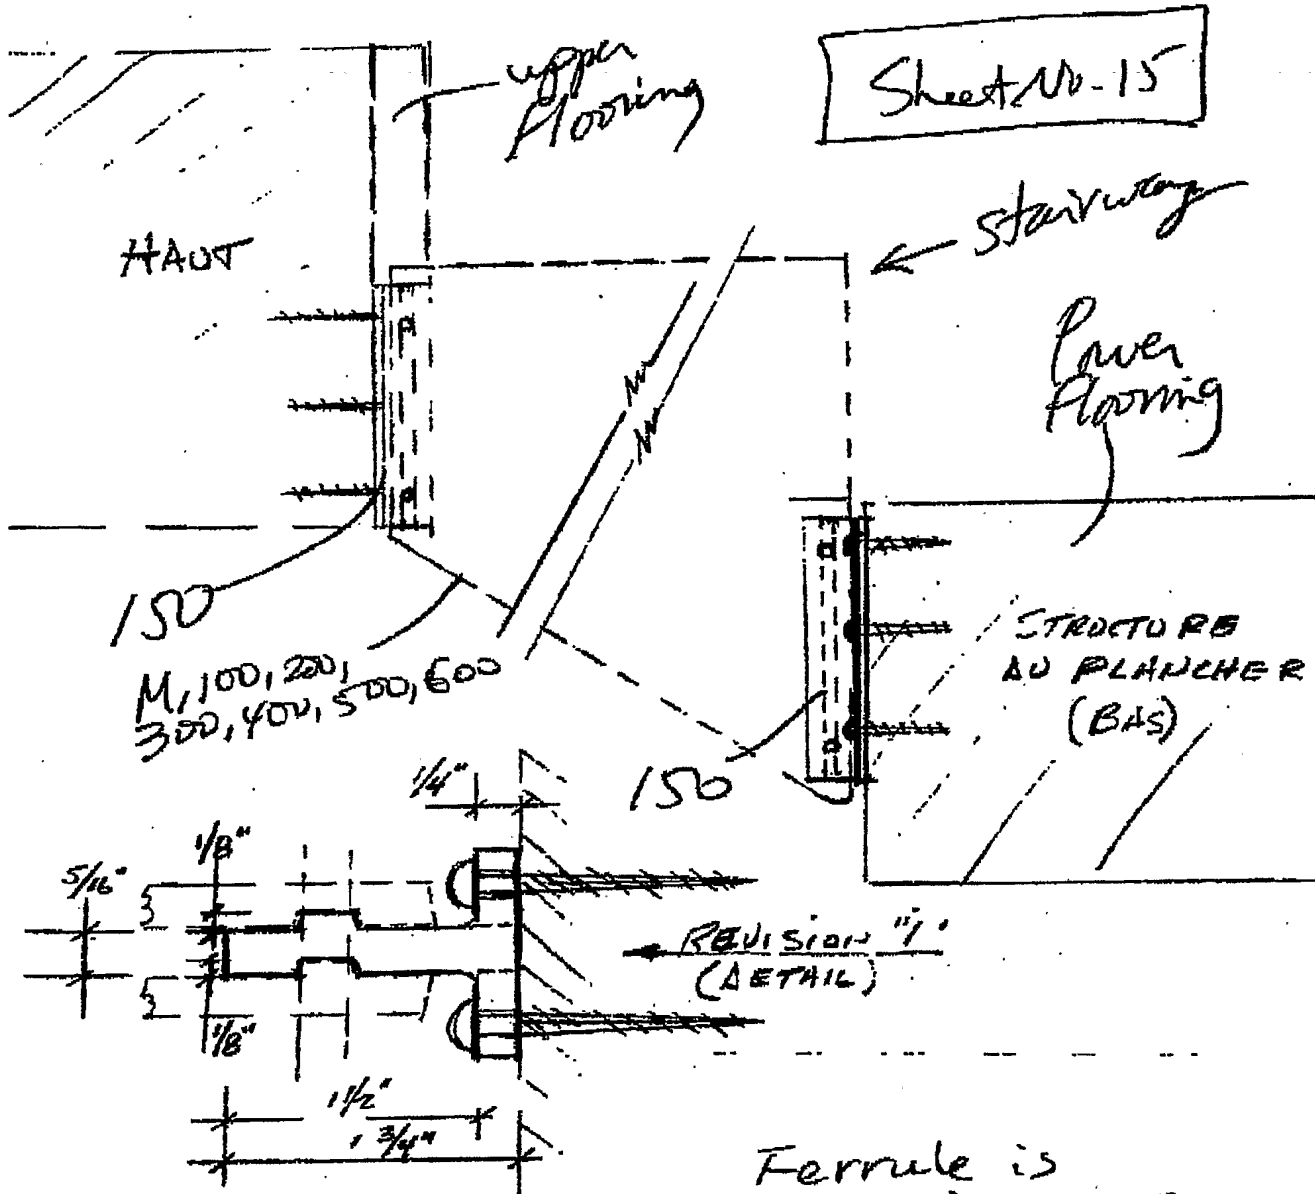 upper
flooring
Sheet No-15
HAUT
stairway
Lower
flooring
150
M, 100, 200,
300, 400, 500, 600
150
STRUCTURE
DU PLANCHER
(BAS)
1/4"
1/8"
5/16"
REVISION "1"
(DETAIL)
1/8"
1 1/2"
1 3/4"
Ferrule is